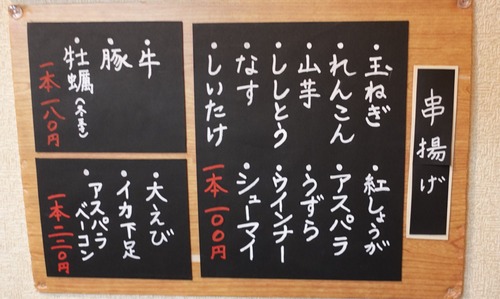 串揚げ
・玉ねぎ
・れんこん
・山芋
・ししとう
・なす
・しいたけ
・紅しょうが
・アスパラ
・うずら
・ウインナー
・シューマイ
一本一〇〇円
・牛
・豚
・牡蠣(冬季)
一本一八〇円
・大えび
・イカ下足
・アスパラ
ベーコン
一本二二〇円